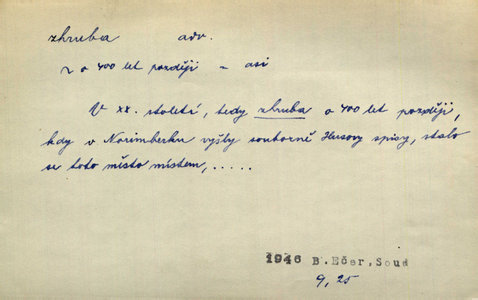 zhruba adv.
~ o 400 let později = asi
V XX. století, tedy zhruba o 400 let později,
kdy v Norimberku vyšly souborně Husovy spisy, stalo
se toto město místem, .....
1946 B. Ečer, Soud
9, 25